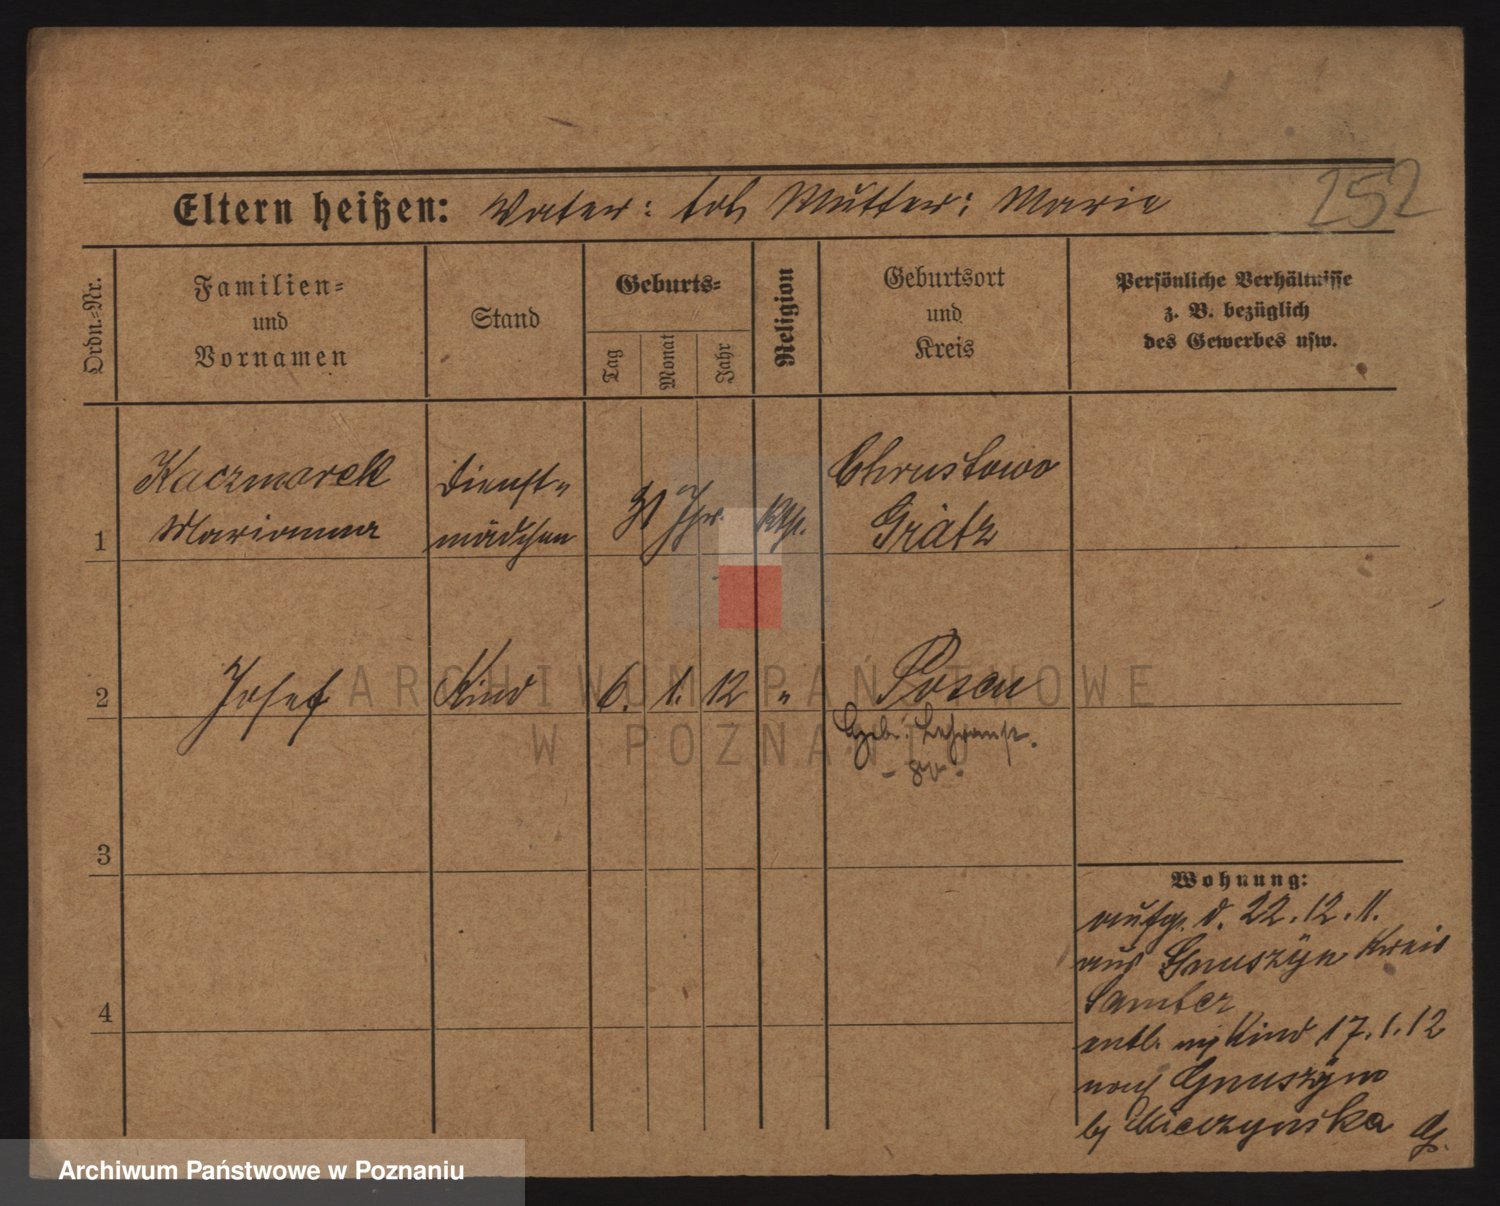 252
Eltern heißen: Vater: tot, Mutter: Marie
Ordn.-Nr.
Familien- und Vornamen
Stand
Geburts-
Tag
Monat
Jahr
Religion
Geburtsort und Kreis
Persönliche Verhältnisse
z. B. bezüglich
des Gewerbes usw.
1
Kaczmarek
Marianna
Dienst-
mädchen
31 Jhr.
kth.
Chrustowo
Grätz
2
Josef
Kind
6. 1. 12
"
Posen
Geb.
3
4
Wohnung:
aufg. d. 22.12.11.
aus Gnuszyn Kreis
Samter
entl. m Kind 17.1.12
nach Gnuszyno
b/
ARCHIWUM PAŃSTWOWE
W POZNANIU
Archiwum Państwowe w Poznaniu